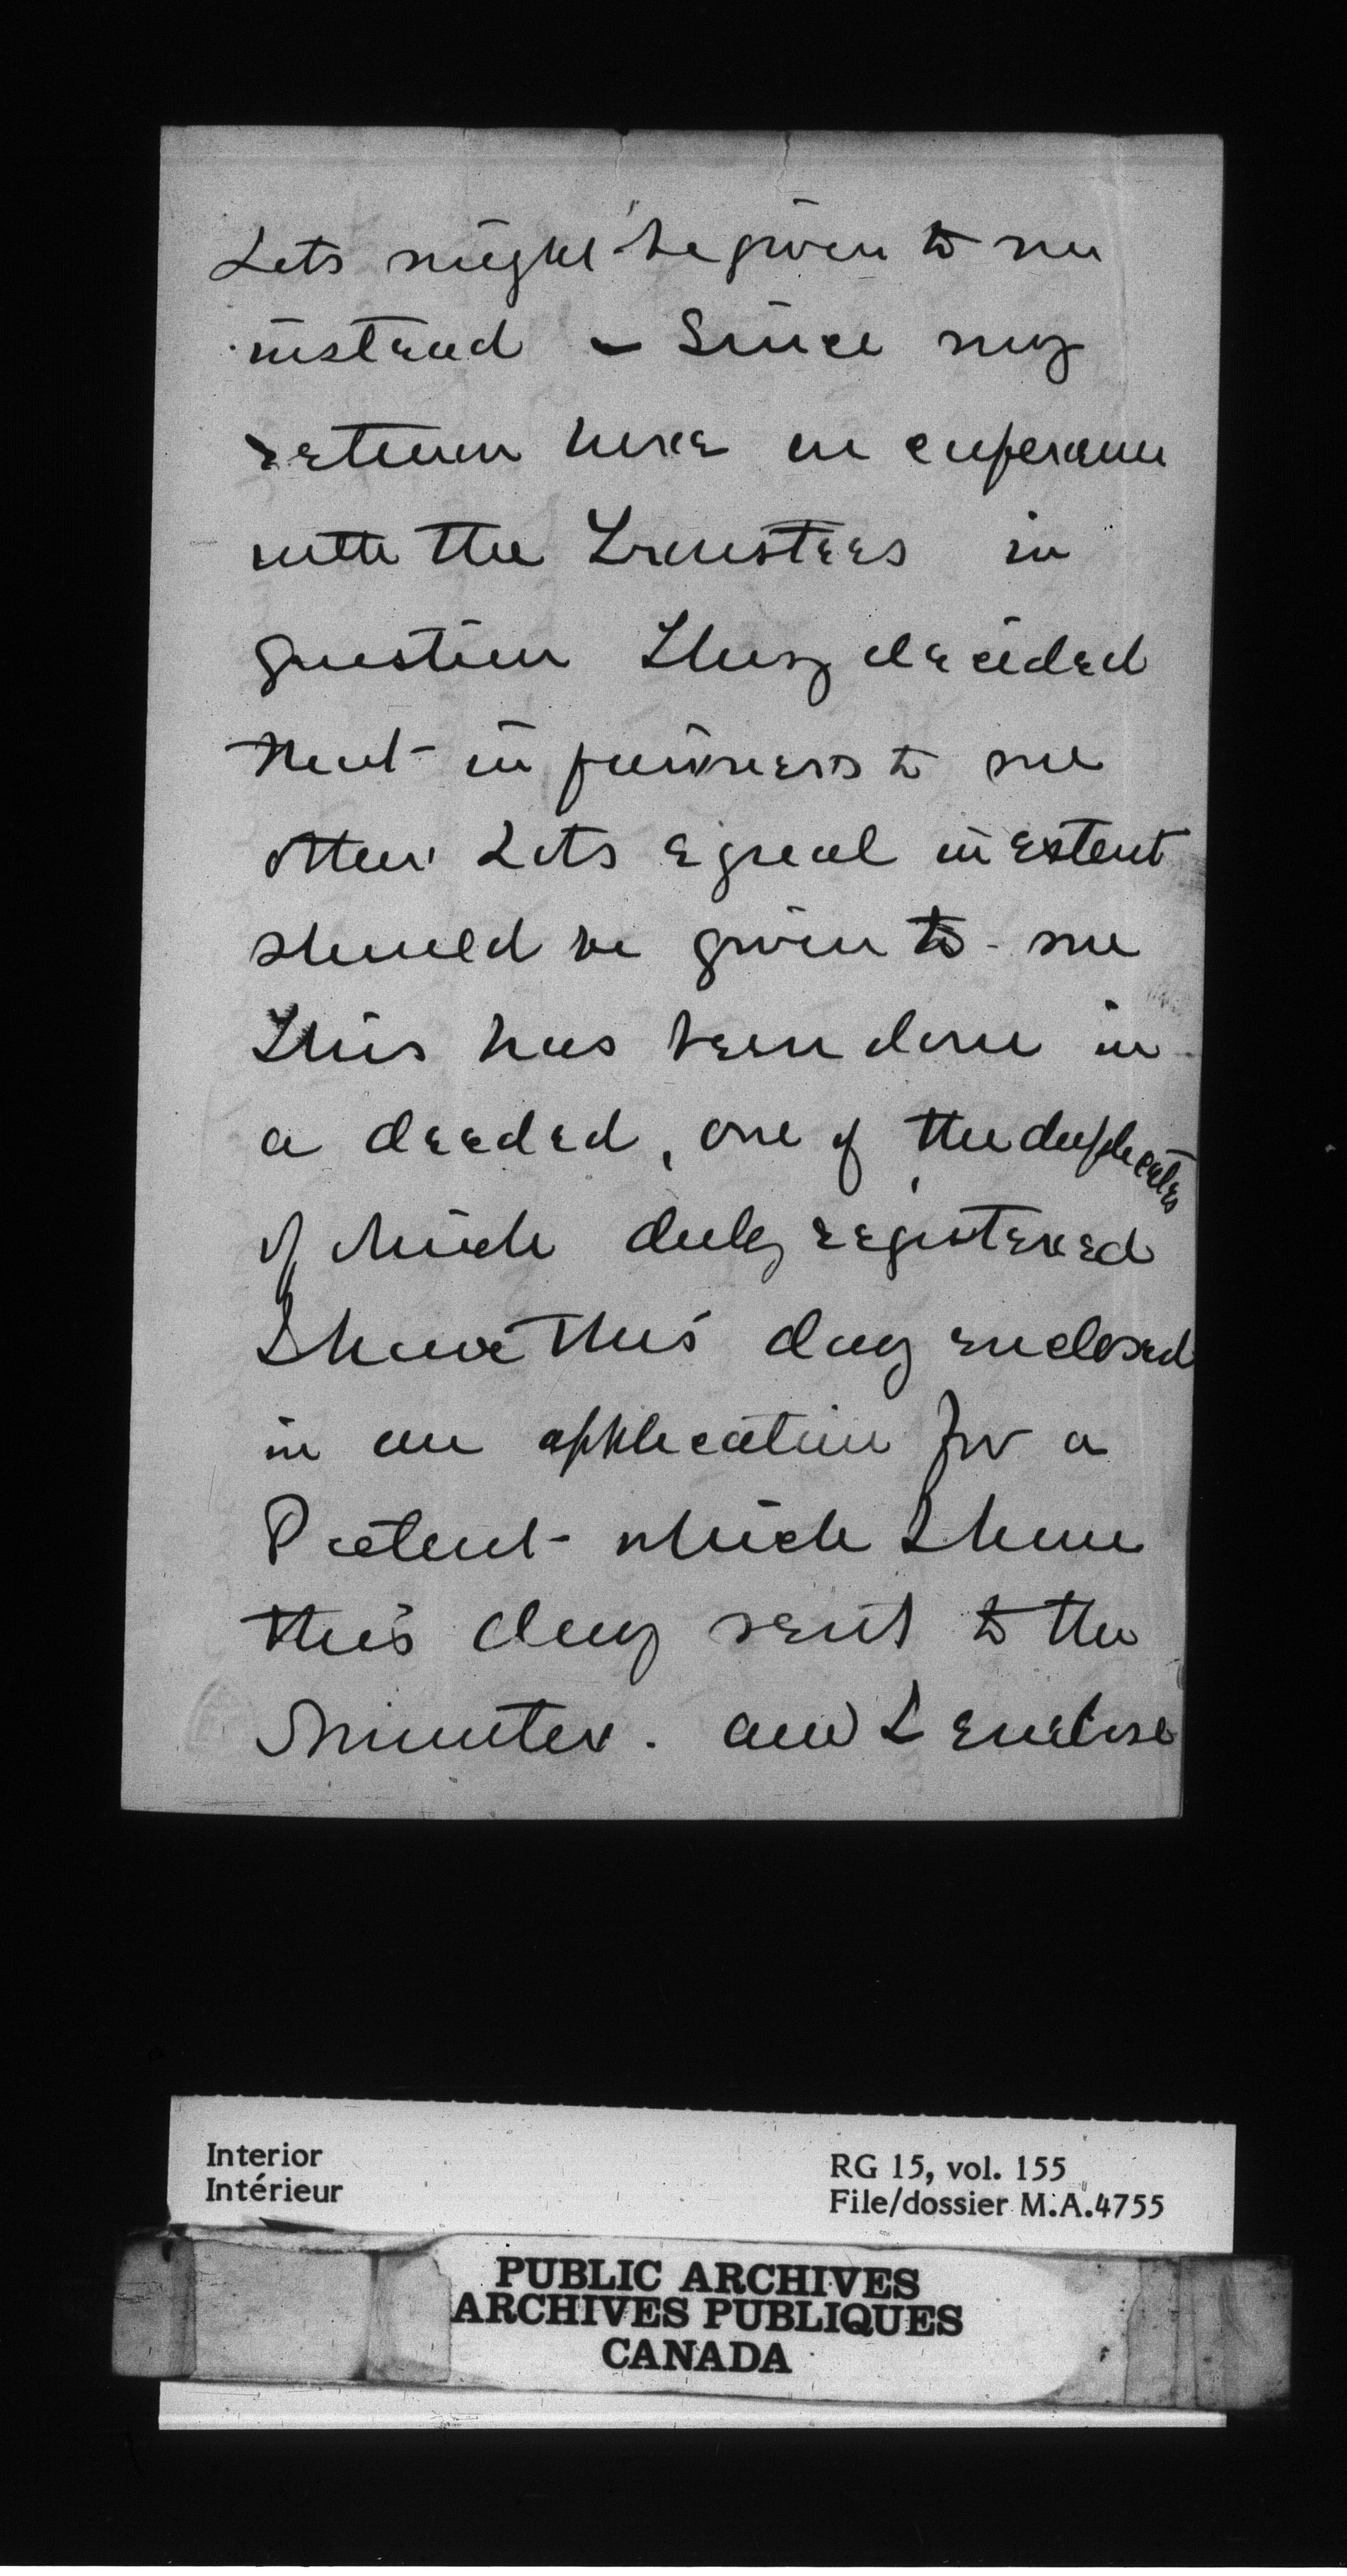 Lots might be given to me
instead - Since my
return here in conference
with the Trustees in
question They decided
that in fairness to me
other Lots equal in extent
should be given to me
This has been done in
a deeded, one of the duplicates
of which duly registered
I have this day enclosed
in an application for a
Patent which I have
this day sent to the
Minister. and I enclose
Interior
Intérieur
RG 15, vol. 155
File/dossier M.A.4755
PUBLIC ARCHIVES
ARCHIVES PUBLIQUES
CANADA